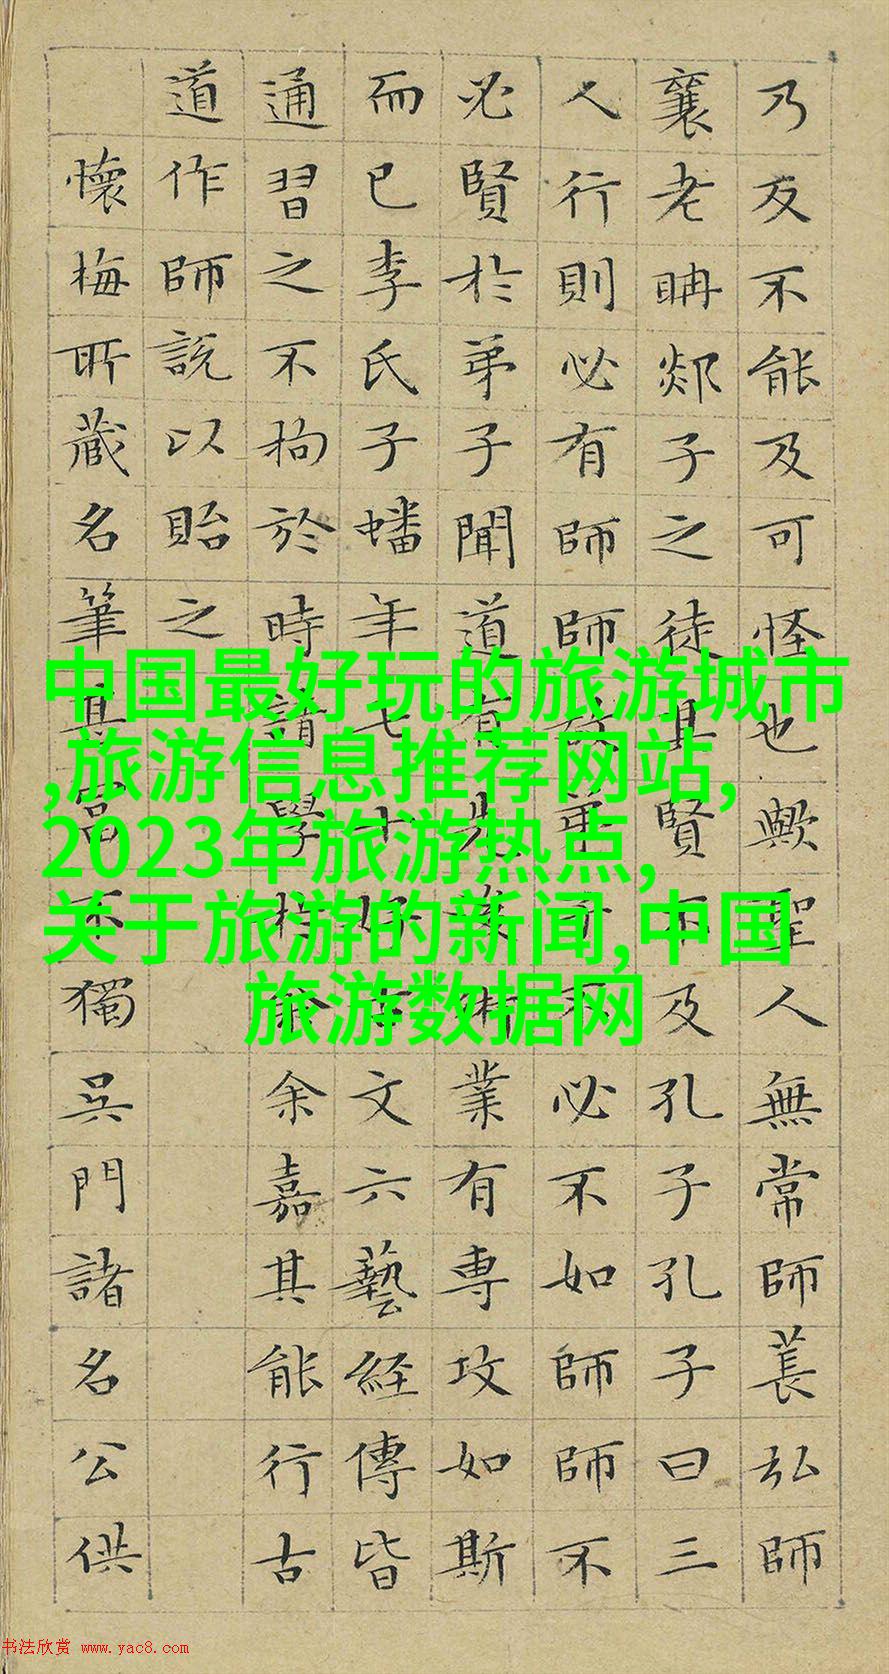 乃反不能及可怪也歟聖人無常師萇弘師
襄老聃郯子之徒其賢不及孔子孔子曰三
人行則必有師師故弟子不必不如師師不
必賢於弟子聞道有先後術業有專攻如斯
而已李氏子蟠年七十好古文六藝経傳皆
通習之不拘於時請學於余余嘉其能行古
道作師說以貽之
懷梅所藏名筆甚富不獨吳門諸名公供
中国最好玩的旅游城市
,旅游信息推荐网站,
2023年旅游热点,
关于旅游的新闻,中国
旅游数据网
书法欣赏 www.yac8.com